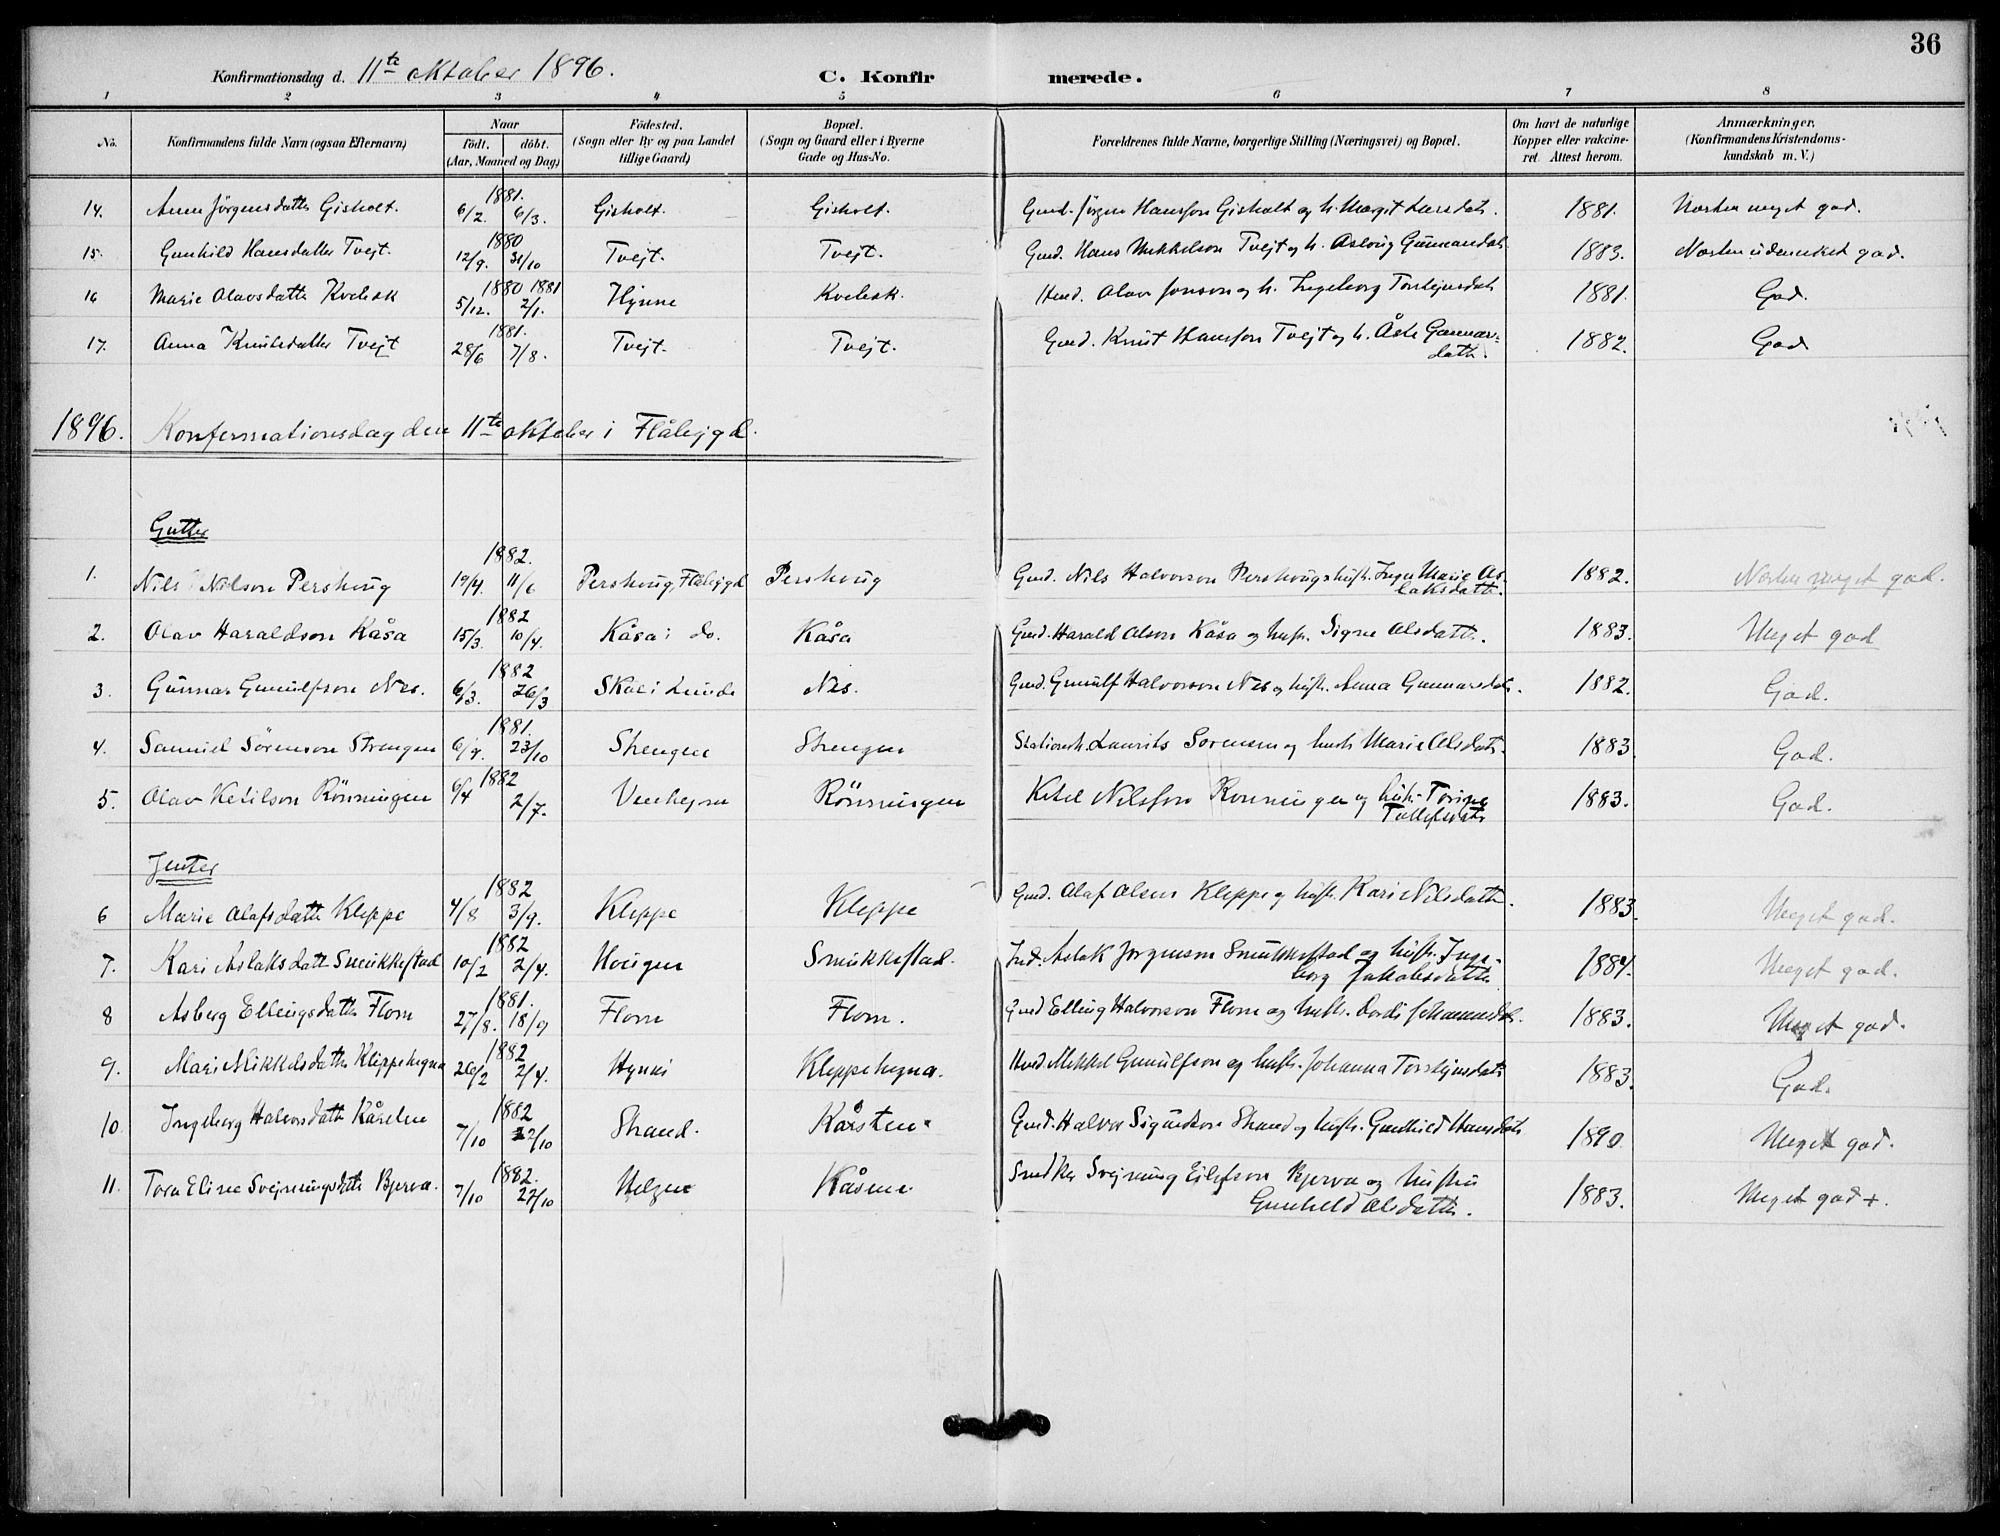 36
Konfirmationsdag d. 11te oktober 1896. C. Konfirmerede.
1 2 3 4 5 6 7 8
No. Konfirmandens fulde Navn (ogsaa Efternavn) Naar født. døbt. (Aar, Maaned og Dag) Födested. (Sogn eller By og paa Landet tillige Gaard) Bopæl. (Sogn og Gaard eller i Byerne Gade og Hus-No. Forældrenes fulde Navne, borgerlige Stilling (Næringsvei) og Bopæl. Om havt de naturlige Kopper eller vakcineret. Attest herom. Anmærkninger, (Konfirmandens Kristendomskundskab m. V.)
14. Anne Jørgensdatter Gisholt. 1881. 6/2. 6/3. Gisholt. Gisholt. Gmd. Jørgen Hansson Gisholt og h. Margit Larsdatr. 1881. Næsten meget god.
15. Gunhild Hansdatter Tvejt. 1880 12/9. 31/10 Tvejt. Tvejt. Gmd. Hans Mikkelson Tvejt og h. Aslaug Gunnarsdatr 1883. Næsten udmerket god.
16 Marie Olavsdatter Kvelsk 1880 1881 5/12. 2/1. Hynne Olav Jonson og h. Ingeborg Torstejnsdatr 1881. God.
17. Anna Knutsdatter Tvejt 1881. 28/6 7/8. Tvejt. Tvejt. Gmd. Knut Hansson Tvejt og h. Åste Gunnarsdattr. 1882. God
1896. Konfirmationsdag den 11te oktober i Flåbygd.
Gutter
1. Nils Nilson Pershoug 1882. 19/4. 11/6 Pershoug, Flåbygd Pershoug Gmd. Nils Halvorson Pershoug hustr. Inger Marie Aslaksdattr. 1882. Næsten meget god.
2. Olav Haraldson Kåsa 1882 15/3. 10/4. Kåsa i do. Kåsa Gmd. Harald Olson Kåsa og hustr. Signe Olsdattr. 1883. Meget god
3. Gunnar Gunulfson Nes. 1882 6/3. 26/3 Lunde Nes. Gmd. Gunulf Halvorson Nes og hustr. Anna Gunnarsdatr. 1882. God.
4. Samuel Sörenson Strengen 1881. 6/9. 23/10 Strengen Strengen Laurits Sorensen og hustr Marie Olsdatr. 1883. God.
5. Olav Ketilson Rönningen 1882 6/4 2/7. Venhejm Rönningen Ketil Nilsson Ronningen og hustr. Torine 1883. God.
Jenter
6 Marie Olafsdattr Kleppe 1882 4/8 3/9. Kleppe Kleppe Gmd. Olaf Olsen Kleppe og hustr. Kari Nilsdattr. 1883. Meget god.
7. Kari Aslaksdattr Smukkestad 1882 10/2 2/4. Hougen Smukkestad. Ind. Aslak Jørgenson Smukkestad og hustr. Ingeborg Jakobsdatter 1884. Meget god.
8 Asberg Ellingsdattr Flom 1881. 27/8. 18/9 Flom Flom. Gmd Elling Halvorson Flom og hustr. Dordi Johannesdatr. 1883. Meget god.
9. Mari Mikkelsdattr Kleppehegna 1882 26/2 2/4. Hynni Kleppehegna. Mikkel Gunulfson og hustr. Johanna Torstejnsdatr 1883. God.
10. Ingeborg Halvorsdattr Kåsten 1882 7/10 22/10 Strand. Kåsten. Gmd. Halvor Sigurdson Strand og hustr. Gunhild Hansdatr 1890. Meget god.
11. Tora Eline Svejnungsdattr Bjerva. 1882. 7/10 22/10 Helgen Kåsene Smed Svejnung Eilefson Bjerva og hustru Gunhild Olsdattr. 1883. Meget god +.